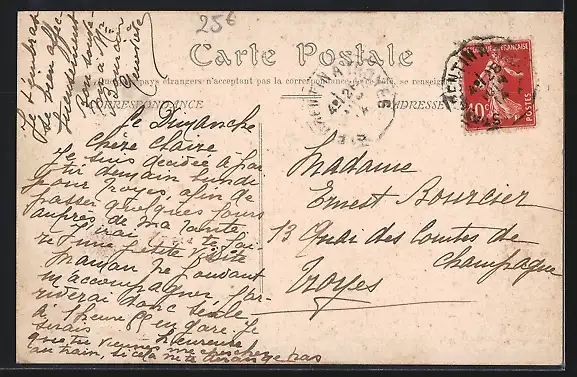 25⁶
Carte Postale
pays étrangers n'acceptent pas la correspondance
se renseigner
CORRESPONDANCE
ADRESSE
10c
POSTES
Le Dimanche
Chère Claire
Je suis décidée à par
tir demain lundi
pour Troyes, afin de
passer quelques jours
auprès de ma tante
J'irai te fai
re une petite visite
Maman ne voulant
m'accompagner, j'ar-
riverai donc seule
à 1 heure en gare. Je
serais heureuse
que tu viennes me chercher
au train, si cela ne te dérange pas
Je t'embrasse
bien affec
tueusement
Bonjour
à Mr
Bourcier
Madame
Ernest Bourcier
13 Quai des Comtes de
Champagne
Troyes